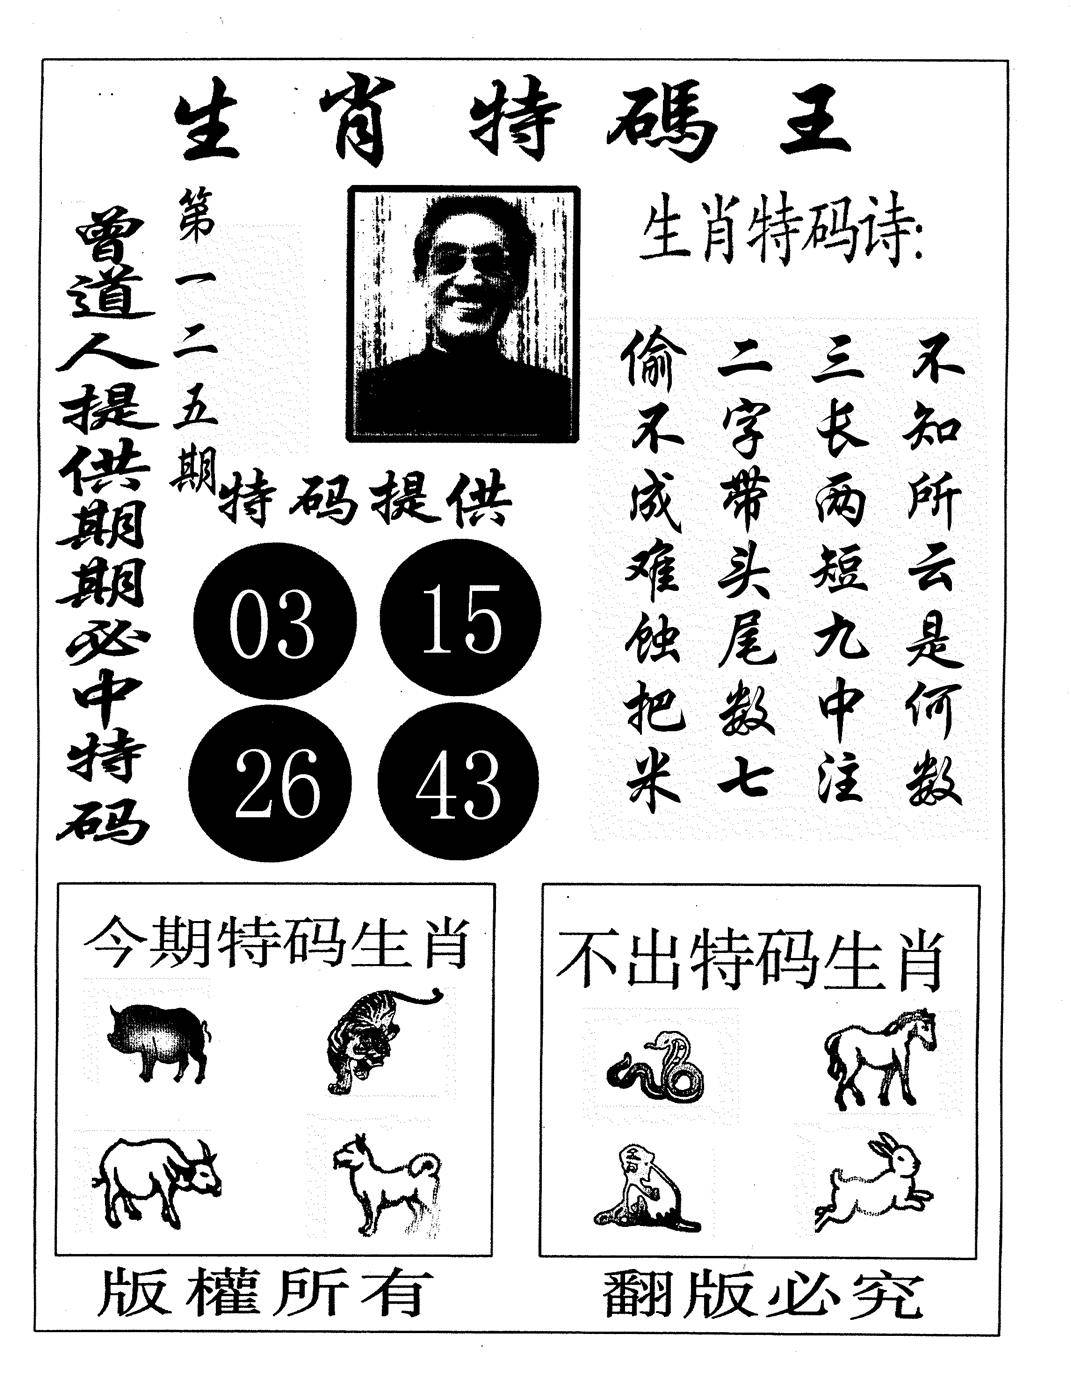 生肖特碼王
曾道人提供期期必中特码
第一二五期
生肖特码诗:
偷不成难蚀把米
二字带头尾数七
三长两短九中注
不知所云是何数
特码提供
03
15
26
43
今期特码生肖
不出特码生肖
版權所有
翻版必究